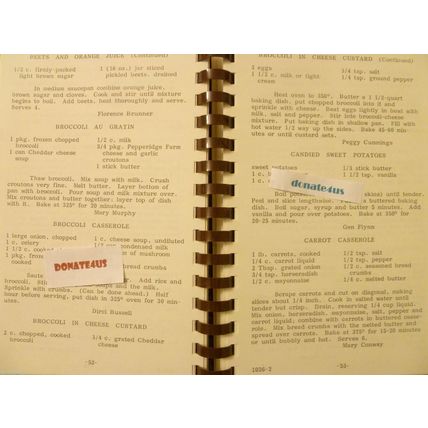 BEETS AND ORANGE JUICE (Continued)
1/2 c. firmly-packed light brown sugar
1 (16 oz.) jar sliced pickled beets, drained
In medium saucepan combine orange juice,
brown sugar and cloves. Cook and stir until mixture
begins to boil. Add beets, heat thoroughly and serve.
Serves 4.
Florence Brunner
BROCCOLI AU GRATIN
1 pkg. frozen chopped broccoli
1 can Cheddar cheese soup
3/4 c. milk
3/4 pkg. Pepperidge Farm cheese and garlic croutons
1 stick butter
Thaw broccoli. Mix soup with milk. Crush
croutons very fine. Melt butter. Layer bottom of
pan with broccoli. Pour soup and milk mixture over.
Mix croutons and butter together; layer top of dish
with it. Bake at 325° for 20 minutes.
Mary Murphy
BROCCOLI CASSEROLE
1 large onion, chopped
1 c. celery
1 1/2 c.
1 pkg. froz
cooked
1 c. cheese soup, undiluted
condensed milk
of mushroom
bread crumbs
DONATE4US
Saute
Add rice and
broccoli,
and the milk.
Sprinkle with crumbs. (Can be done ahead.) Half
hour before serving, put dish in 325° oven for 30 min-
utes.
Dirci Russell
BROCCOLI IN CHEESE CUSTARD
2 c. chopped, cooked broccoli
3/4 c. grated Cheddar cheese
-52-
BROCCOLI IN CHEESE CUSTARD (Continued)
2 eggs
1 1/2 c. milk or light cream
3/4 tsp. salt
1/4 tsp. ground pepper
Heat oven to 350°. Butter a 1 1/2-quart
baking dish, put chopped broccoli into it and
sprinkle with cheese. Beat eggs lightly in bowl with
milk, salt and pepper. Stir into broccoli-cheese
mixture. Put baking dish in shallow pan. Fill with
hot water 1/2 way up the sides. Bake 45-60 min-
utes or until custard sets.
Peggy Cummings
CANDIED SWEET POTATOES
sweet potatoes
1 c.
1 c.
1/2 stick butter
1/2 tsp. vanilla
donate4us
Boil
skins) until tender.
Peel and slice lengthwise.
a buttered baking
dish. Boil sugar, syrup and butter 5 minutes. Add
vanilla and pour over potatoes. Bake at 375° for
20-25 minutes.
Gen Flynn
CARROT CASSEROLE
1 lb. carrots, cooked
1/4 c. carrot liquid
2 Tbsp. grated onion
3/4 tsp. horseradish
1/2 c. mayonnaise
1/2 tsp. salt
1/2 tsp. pepper
1/2 c. seasoned bread crumbs
1/8 c. melted butter
Scrape carrots and cut on diagonal, making
slices about 1/4 inch. Cook in salted water until
tender but crisp. Drain, reserving 1/4 cup liquid.
Mix onion, horseradish, mayonnaise, salt, pepper and
carrot liquid; combine with carrots in buttered casse-
role. Mix bread crumbs with the melted butter and
spread over carrots. Bake at 375° for 15-20 minutes
or until bubbly and hot. Serves 6.
Mary Conway
1096-2
-53-